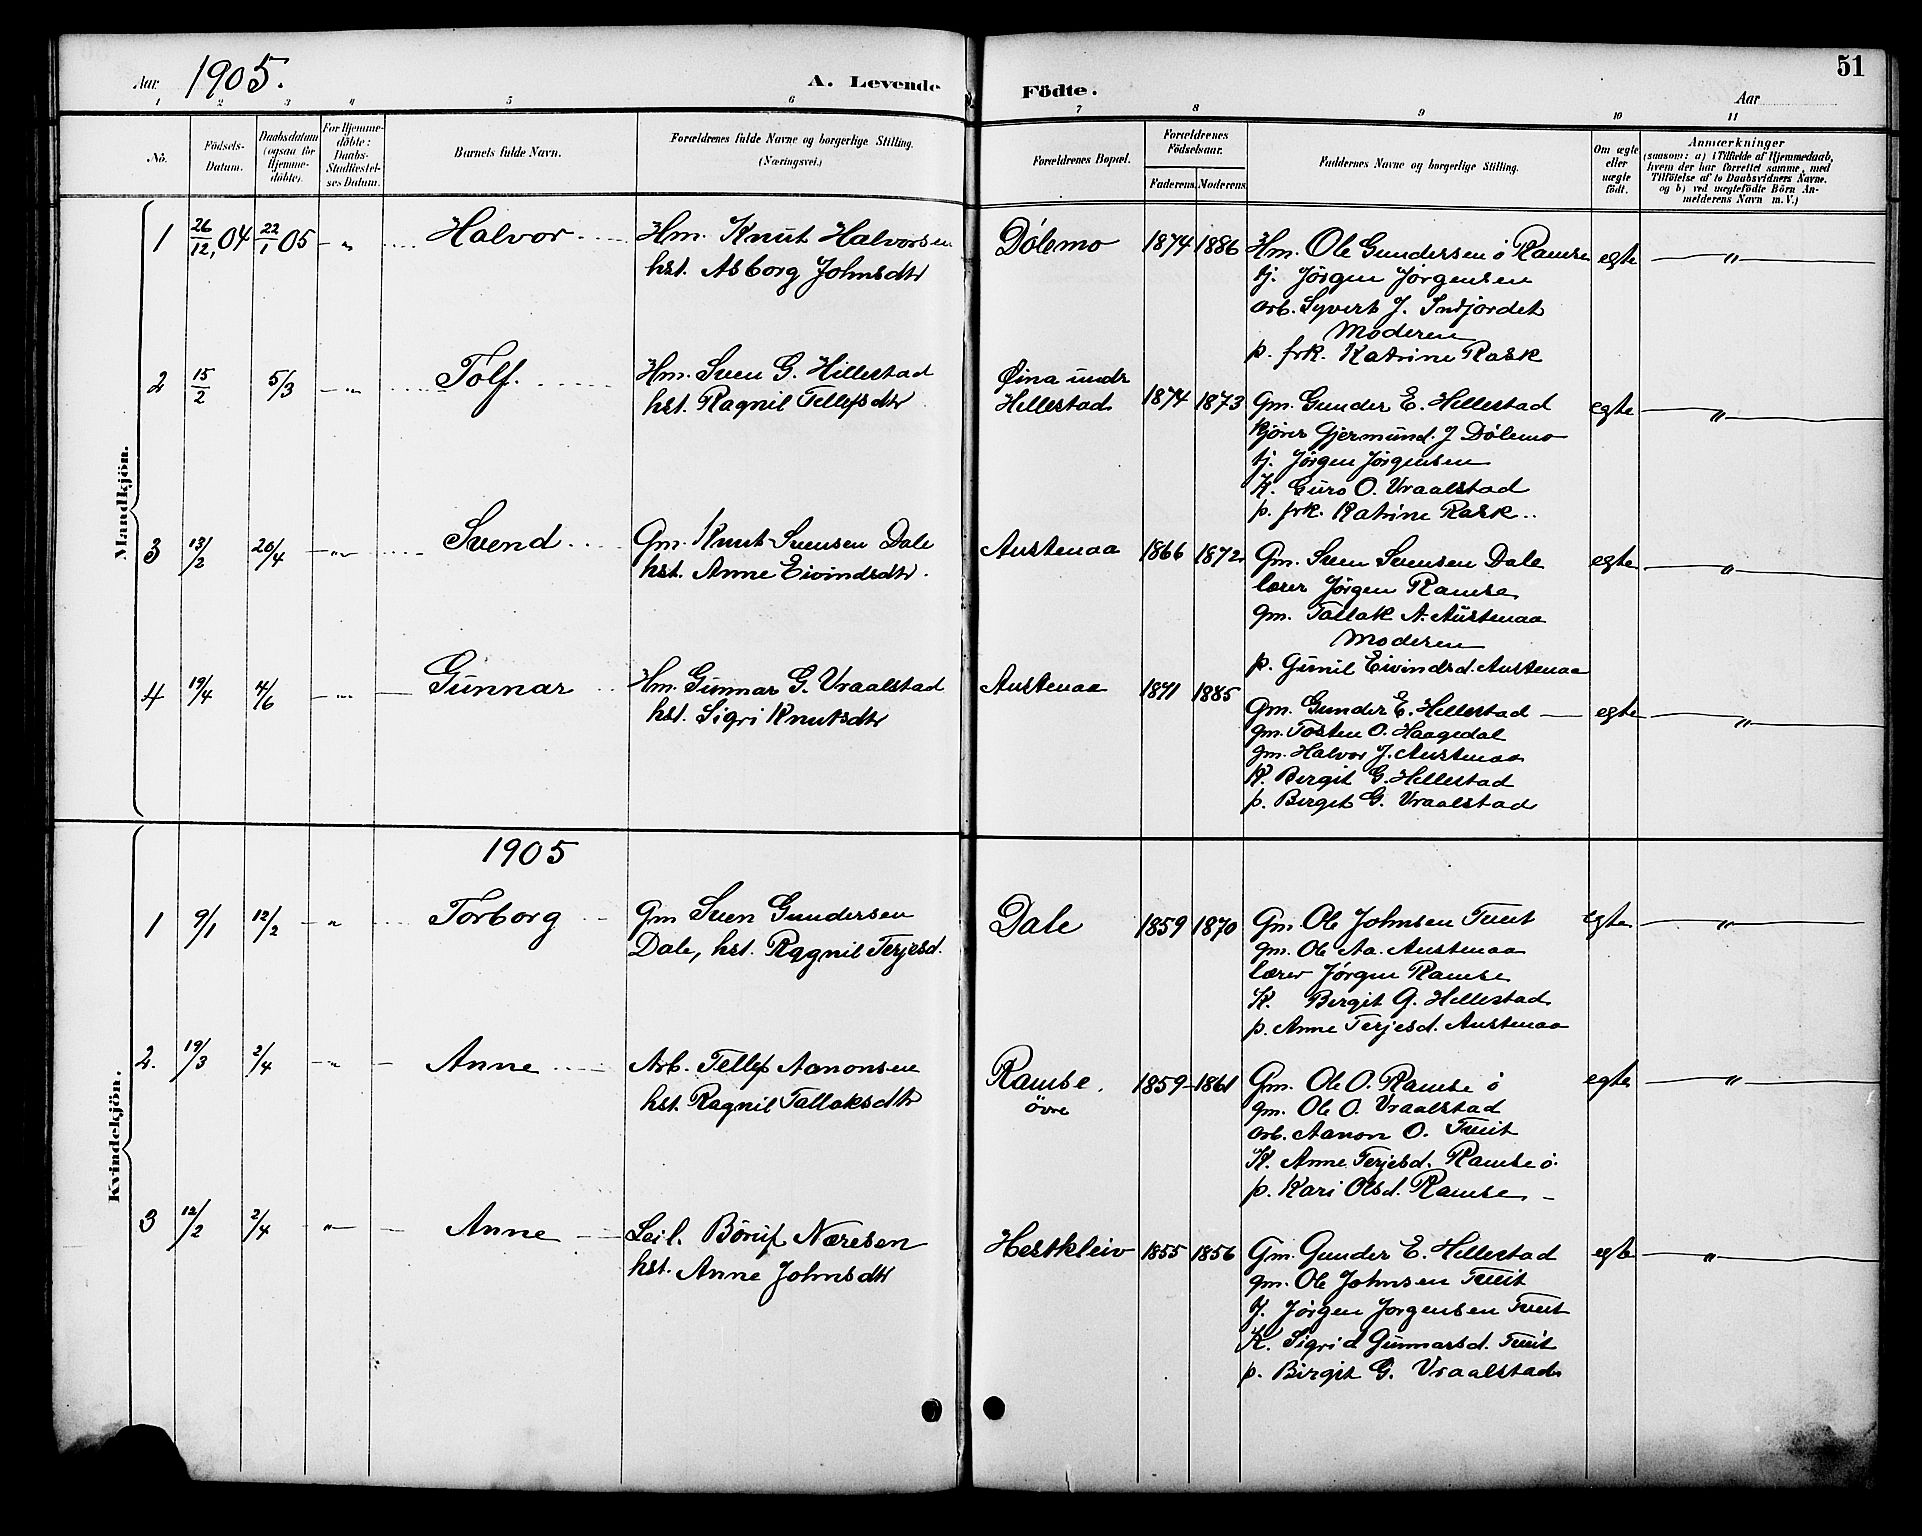 Aar 1905.
A. Levende Födte.
51
Aar
1 2 3 4 5 6 7 8 9 10 11
No.
Födsels-Datum.
Daabsdatum (ogsaa for Hjemmedöbte).
For Hjemmedöbte: Daabs-Stadfæstelses Datum.
Barnets fulde Navn.
Forældrenes fulde Navne og borgerlige Stilling. (Næringsvei.)
Forældrenes Bopæl.
Forældrenes Födselsaar.
Faderens. Moderens.
Faddernes Navne og borgerlige Stilling.
Om ægte eller uægte födt.
Anmærkninger
(saasom: a) i Tilfælde af Hjemmedaab,
hvem der har forrettet samme, med
Tilföielse af to Daabsvidners Navne.
og b) ved uægtefödte Börn Anmelderens Navn m. V.)
Mandkjön.
1 26/12, 04 22/1 05 - " Halvor Hm. Knut Halvorsen Dölemo 1874 1886 Hm. Ole Gundersen ö Ramse egte "
hst. Asborg Johnsdtr tj. Jörgen Jörgensen
arb. Syvert J. Indjordet
Moderen
p. frk. Katrine Rask
2 15/2 5/3 - " Tolf. Hm. Sven G. Hillestad Öina undr 1874 1873 Gm. Gunder E. Hellestad egte "
hst. Ragnil Tellefsdtr Hellestad kjörer Gjermund. J Dölemo
tj. Jörgen Jörgensen
K. Guro O. Vraalstad
p. frk. Katrine Rask..
3 13/2 20/4 - " Svend Gm. Knut Svensen Dale Austenaa 1866 1872 Gm. Sven Svensen Dale egte "
hst. Anne Eivindsdtr. lærer Jörgen Ramse
gm. Tallak A. Austenaa
Moderen
p. Gunil Eivindsd. Austenaa
4 19/4 4/6 - " Gunnar Hm. Gunnar G. Vraalstad Austenaa 1841 1885 Gm. Gunder E. Hellestad egte "
hst. Sigri Knutsdtr gm. Tosten O. Haagedal
gm. Halvor J. Austenaa
K. Bergit G. Hellestad
p. Birgit G. Vraalstad
Kvindekjön.
1905
1 9/1 12/2 - " Torborg Gm Sven Gundersen Dale 1859 1870 Gm. Ole Johnsen Tveit egte "
Dale, hst. Ragnil Terjesd. gm. Ole Aa. Austenaa
lærer Jörgen Ramse
K. Bergit G. Hellestad
p. Anne Terjesd. Austenaa
2. 19/3 2/4 - " Anne Arb. Tellef Aanonsen Ramse. 1859 1861 Gm. Ole O. Ramse ö egte "
hst. Ragnil Tallaksdtr övre gm. Ole O. Vraalstad
arb. Aanon O. Tveit
K. Anne Terjesd. Ramse ö.
p. Kari Olsd. Ramse
3 12/2 2/4 " Anne Leil. Böruf Næresen Hestkleiv 1855 1856 Gm. Gunder E. Hellestad egte "
hst. Anne Johnsdtr gm. Ole Johnsen Tveit
tj. Jörgen Jorgensen Tveit
K. Sigrid Gunnarsd. Tveit
p. Birgit G. Vraalstad